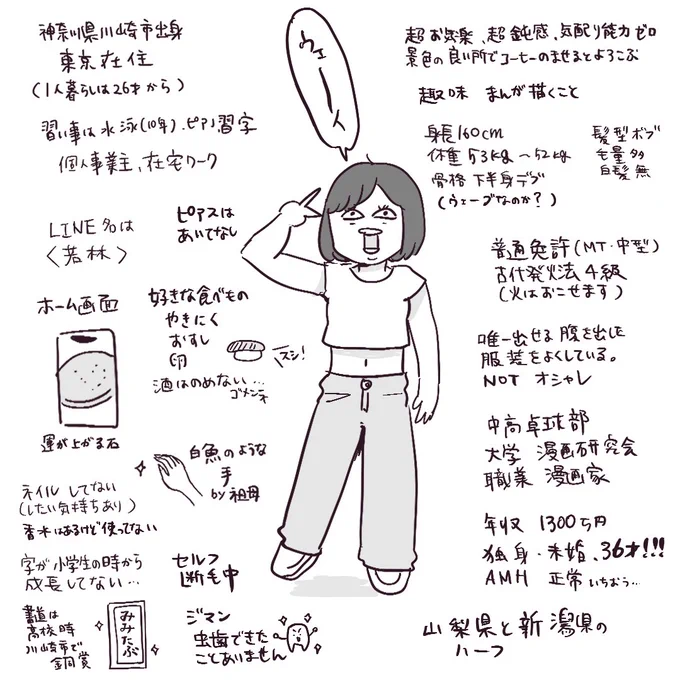 神奈川県川崎市出身
東京在住
(1人暮らしは26才から)
習い事は水泳(10年)、ピアノ、習字
個人事業主、在宅ワーク
LINE名は
〈若林〉
ピアスは
あいてなし
ホーム画面
運が上がる石
好きな食べもの
やきにく
おすし
卵
スシ!
酒はのめない…
ゴメンネ
白魚のような
手
by 祖母
ネイルしてない
(したい気持ちあり)
香水はあるけど使ってない
字が小学生の時から
成長してない…
セルフ
断毛中
書道は
高校時
川崎市で
銅賞
みみたぶ
ジマン
虫歯できた
ことありません
ウェーイ
超お気楽、超鈍感、気配り能力ゼロ
景色の良い所でコーヒーのませるとよろこぶ
趣味 まんが描くこと
身長160cm
体重53kg〜52kg
骨格 下半身デブ
(ウェーブなのか?)
髪型ボブ
毛量多
白髪無
普通免許(MT・中型)
古代発火法4級
(火はおこせます)
唯一出せる腹を出した
服装をよくしている。
NOT オシャレ
中高卓球部
大学 漫画研究会
職業 漫画家
年収 1300万円
独身・未婚、36才!!!
AMH 正常 いちおう…
山梨県と新潟県の
ハーフ